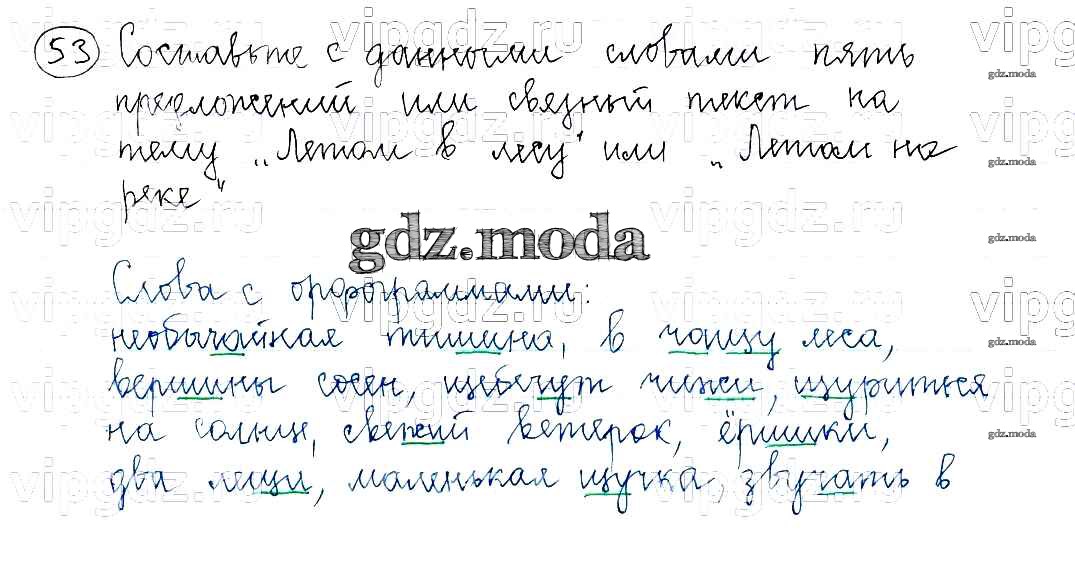 53 Составьте с данными словами пять
предложений или связный текст на
тему „Летом в лесу" или „Летом на
реке"
gdz.moda
Слова с орфограммами:
необычайная тишина, в чащу леса,
вершины сосен, щебечут чижи, щуриться
на солнце, свежий ветерок, ёршики,
два леща, маленькая щучка, звучать в